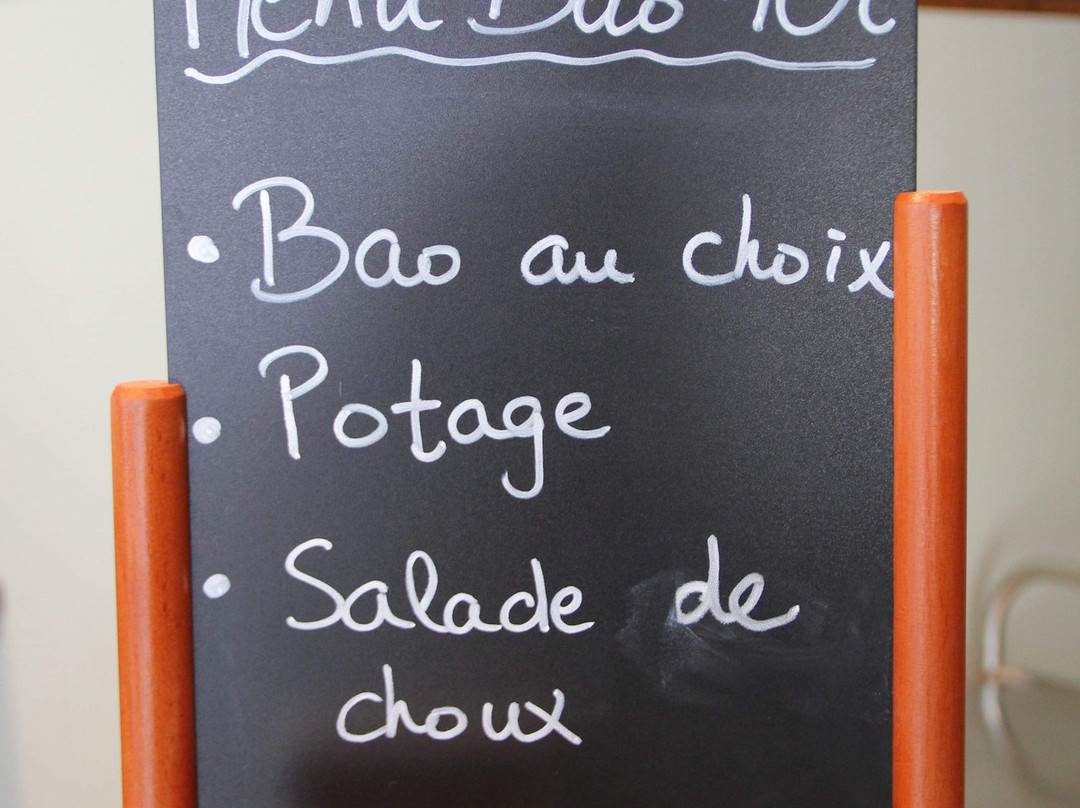 Menu Bao
• Bao au choix
• Potage
• Salade de
choux